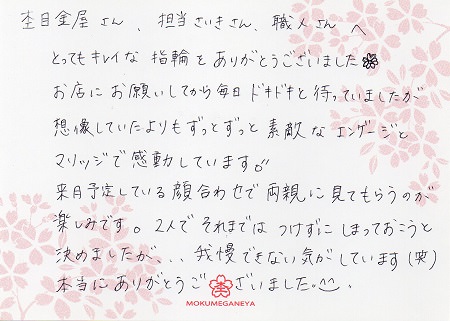 杢目金屋さん、担当さいきさん、職人さんへ
とってもキレイな指輪をありがとうございました
お店にお願いしてから毎日ドキドキと待っていましたが
想像していたよりもずっとずっと素敵なエンゲージと
マリッジで感動しています!!
来月予定している顔合わせで両親に見てもらうのが
楽しみです。2人でそれまではつけずにしまっておこうと
決めましたが、、、我慢できない気がしています(笑)
本当にありがとうございました。^^
MOKUMEGANEYA